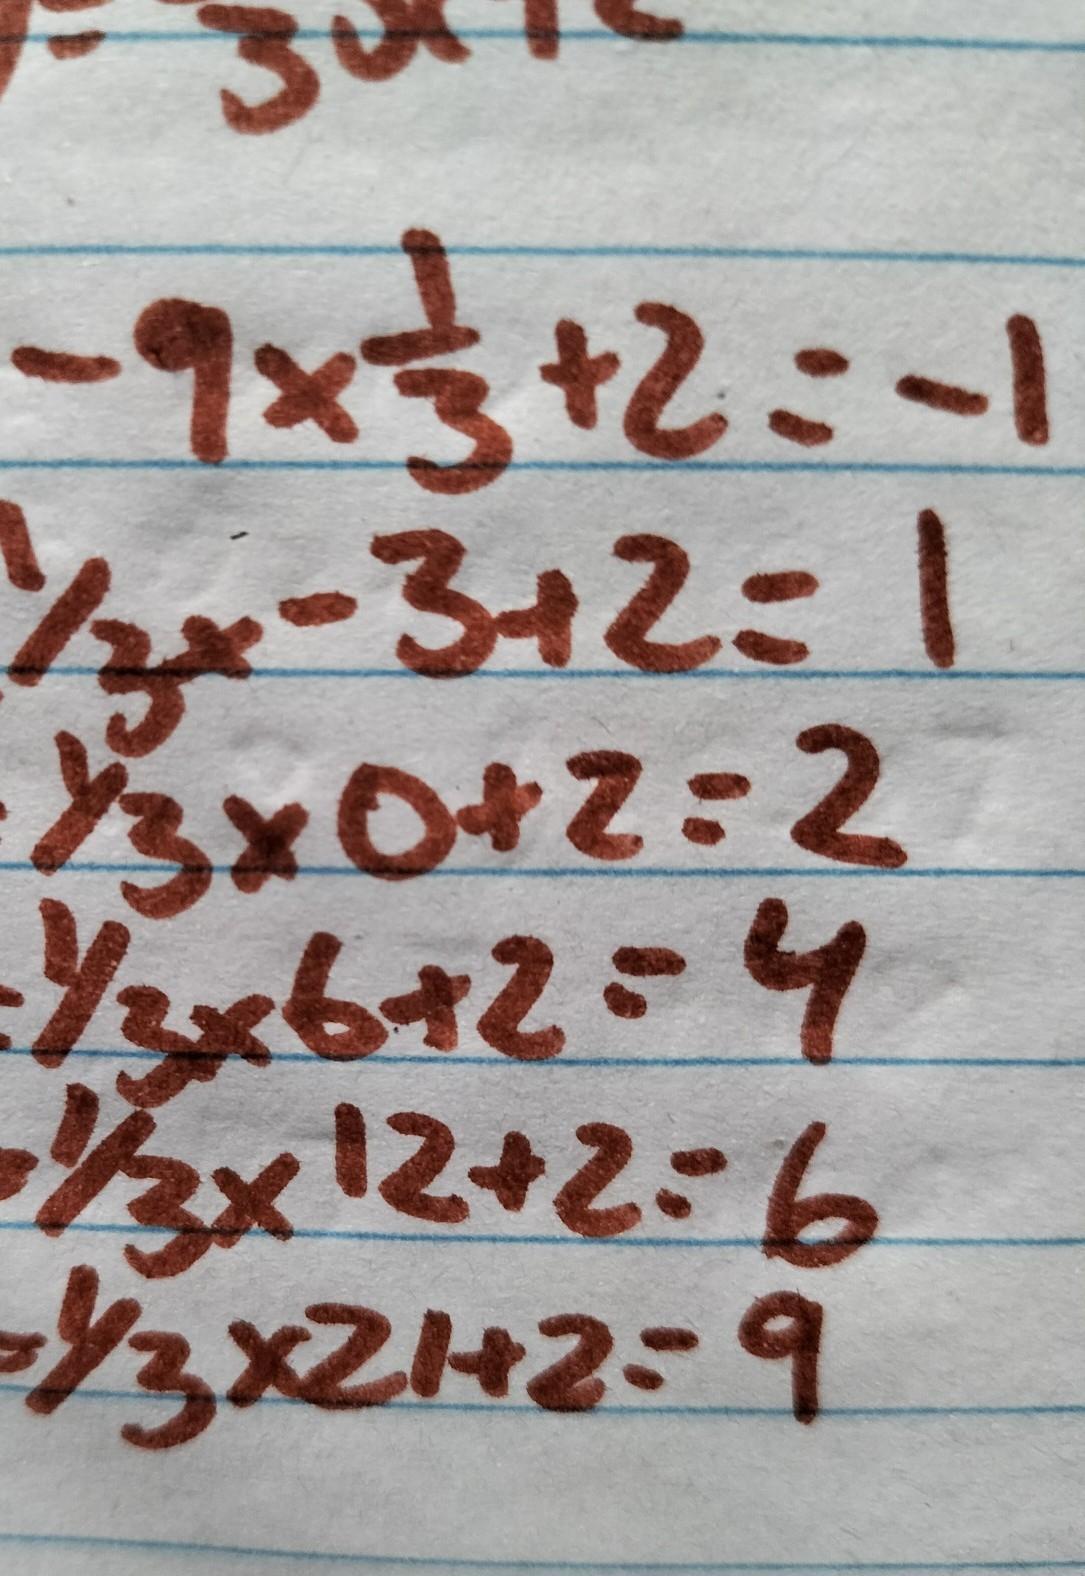 = 1/3 x + 2
-9 x 1/3 + 2 = -1
1/3 x -3 + 2 = 1
= 1/3 x 0 + 2 = 2
= 1/3 x 6 + 2 = 4
= 1/3 x 12 + 2 = 6
= 1/3 x 21 + 2 = 9